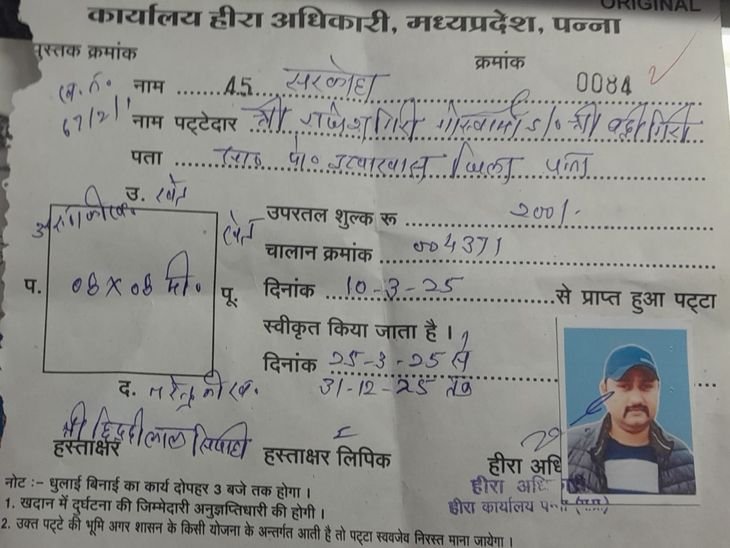 ORIGINAL
कार्यालय हीरा अधिकारी, मध्यप्रदेश, पन्ना
पुस्तक क्रमांक क्रमांक
नाम 45 सरकोहा 0084
67/2/1
नाम पट्टेदार श्री राजेश गिरी गोस्वामी S/o श्री बद्री गिरी
पता जिला पन्ना
उ. खेत
उपरतल शुल्क रू 200/-
खेत
चालान क्रमांक 004371
प. 08 x 08 मी० पू. दिनांक 10-3-25 से प्राप्त हुआ पट्टा
स्वीकृत किया जाता है ।
दिनांक 25-3-25 से
31-12-25 तक
द. नरेन्द्र की ख.
श्री सिपाही
हस्ताक्षर हस्ताक्षर लिपिक हीरा अधि
हीरा अधि
हीरा कार्यालय पन्ना (म.प्र.)
नोट :- धुलाई बिनाई का कार्य दोपहर 3 बजे तक होगा ।
1. खदान में दुर्घटना की जिम्मेदारी अनुज्ञप्तिधारी की होगी ।
2. उक्त पट्टे की भूमि अगर शासन के किसी योजना के अन्तर्गत आती है तो पट्टा स्वयमेव निरस्त माना जायेगा ।